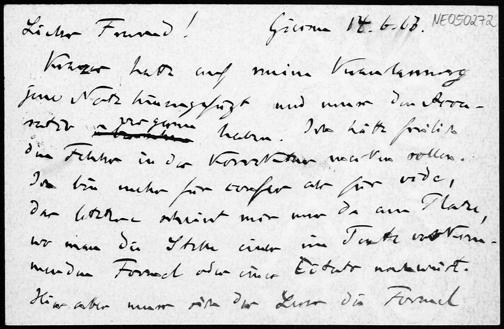 Lieber Freund! Girona 14.6.63. NE050272
Kraze hatte auf meine Veranlassung
jene Note hinzugefügt und muss den
haben. Ich hätte freilich
den Fehler in der Korrektur merken sollen.
Ich bin mehr für confer als für vide,
das letztere scheint mir nur da am Platze,
wo man die Stelle einer im Texte vorkom-
menden Formel oder eines Citats nachweist.
Hier aber muss sich der Leser die Formel